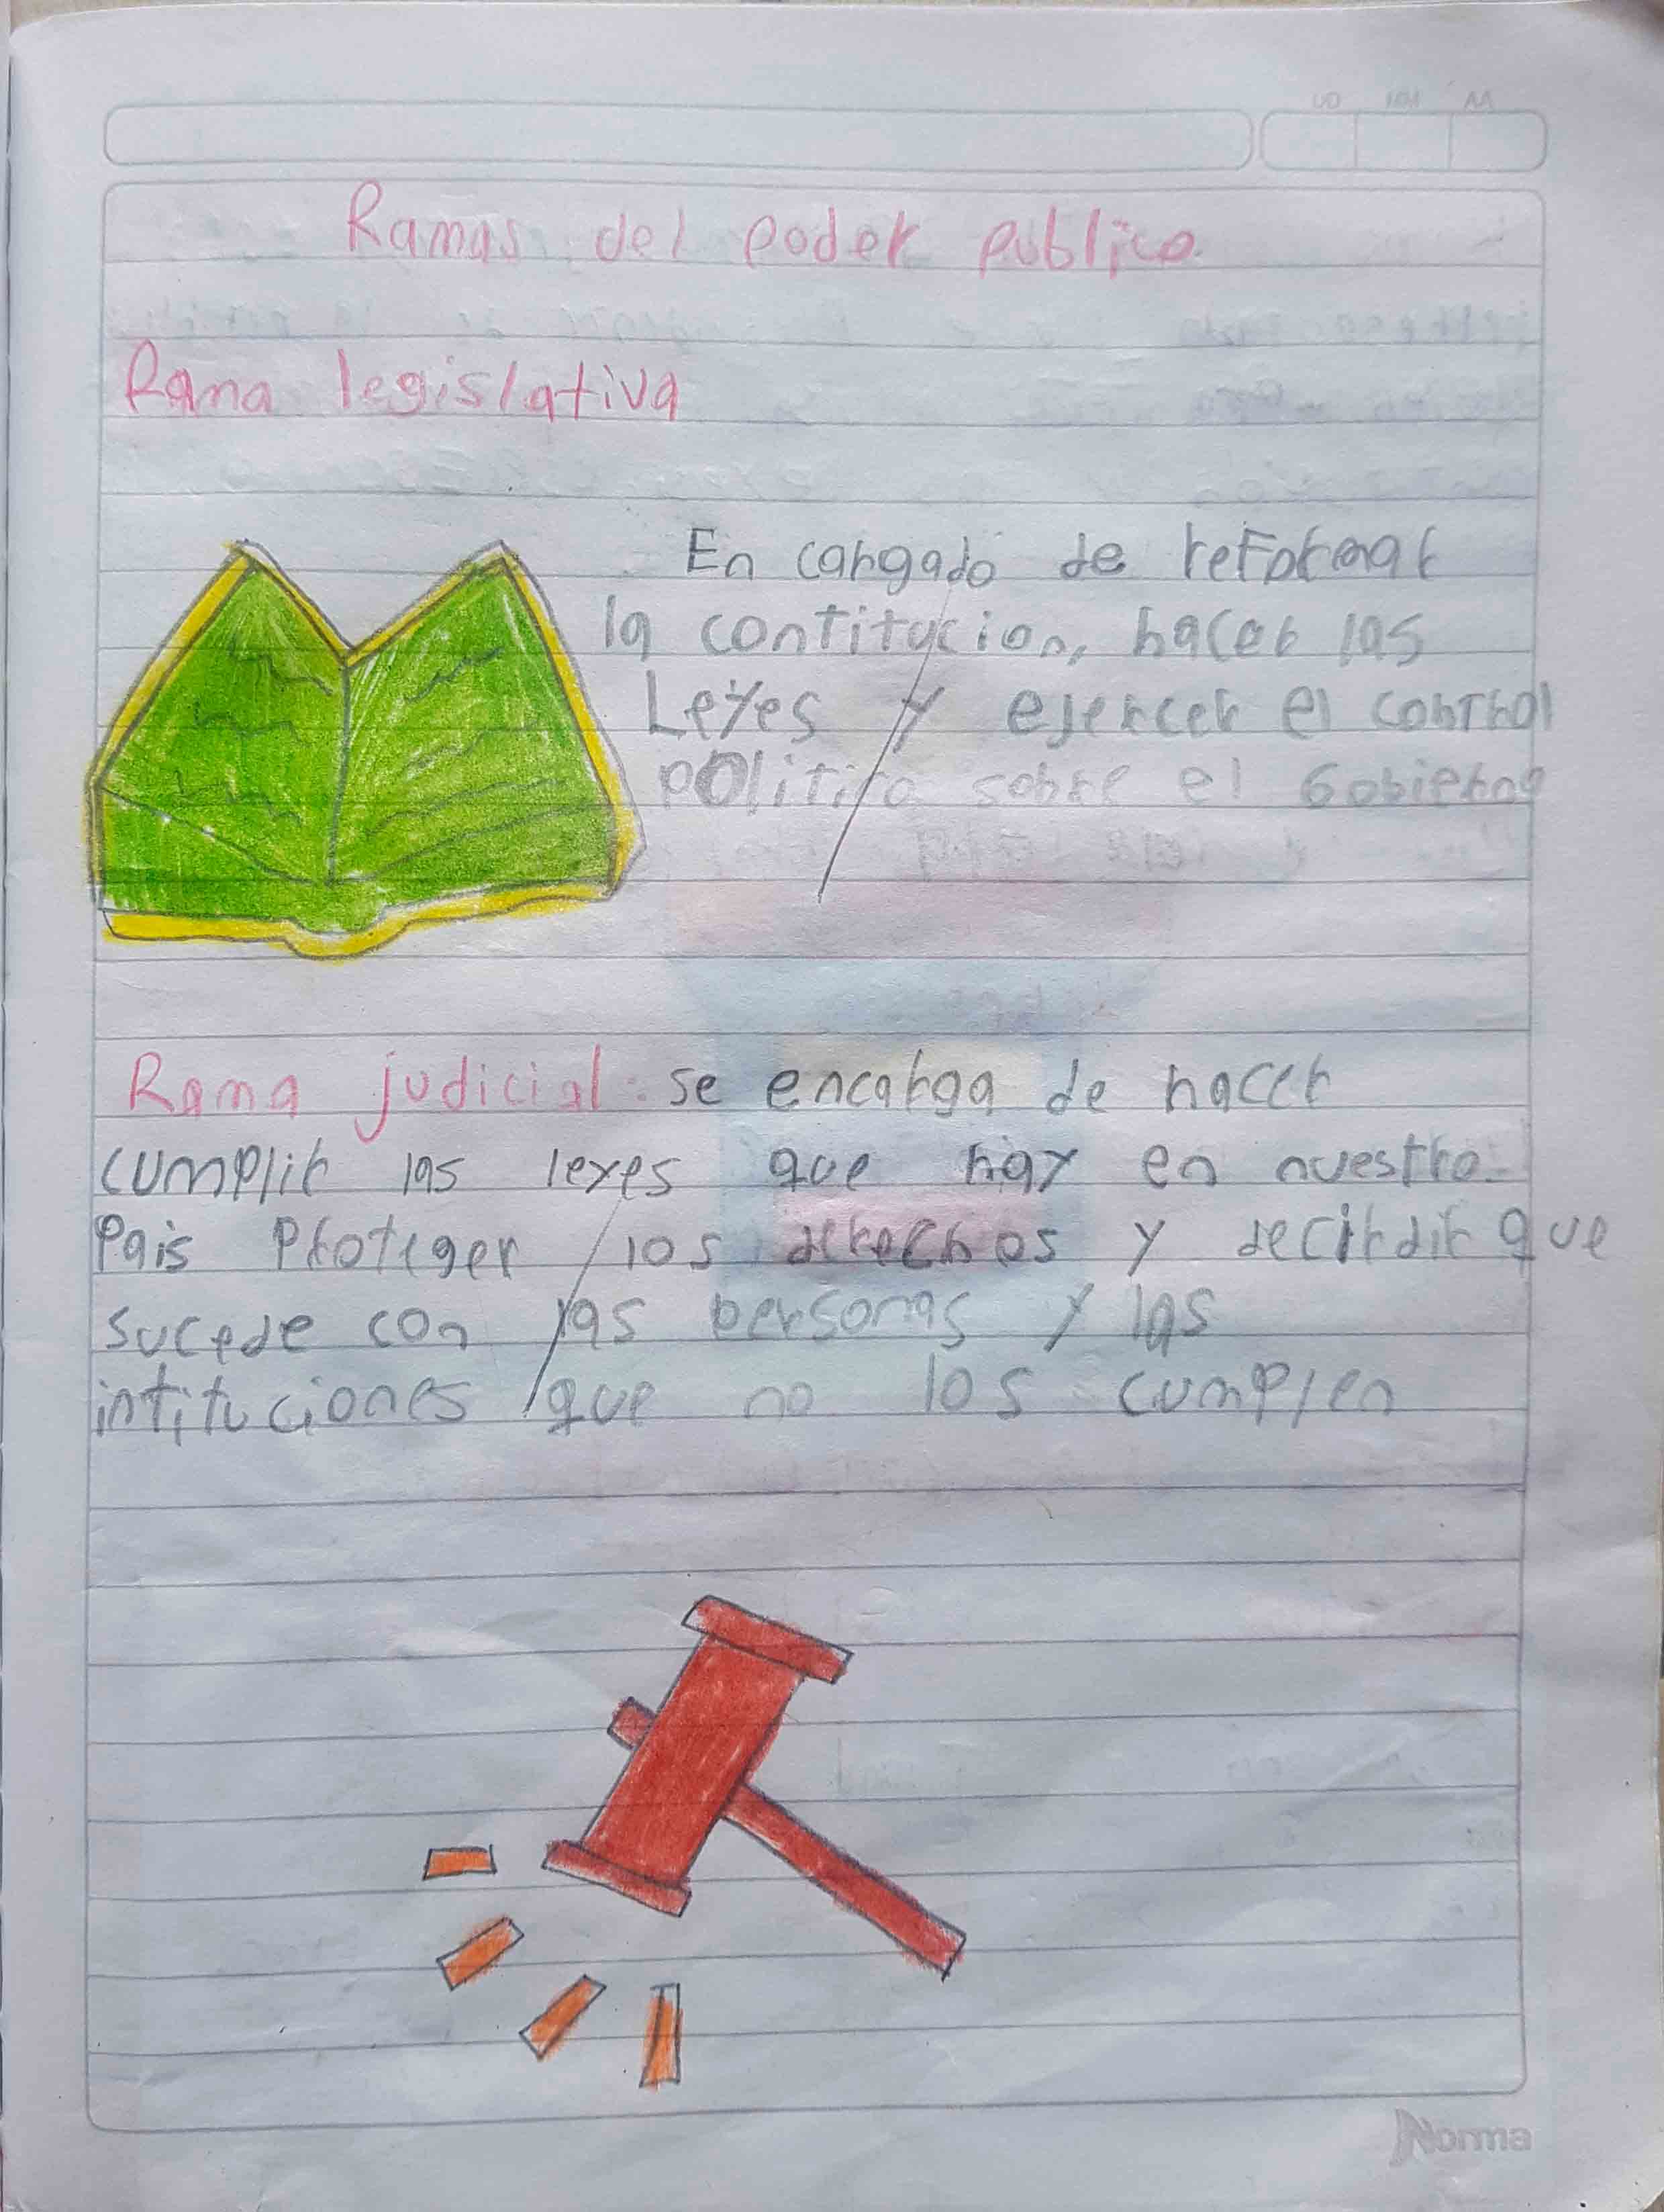 UD MM AA
Ramas del poder publico.
Rama legislativa
En cargado de reformar
la contitucion, hacer las
Leyes y ejercer el control
politico sobre el Gobierno
Rama judicial: se encarga de hacer
cumplir las leyes que hay en nuestro
Pais Proteger los derechos y decirdir que
sucede con las personas y las
intituciones que no los cumplen
Norma